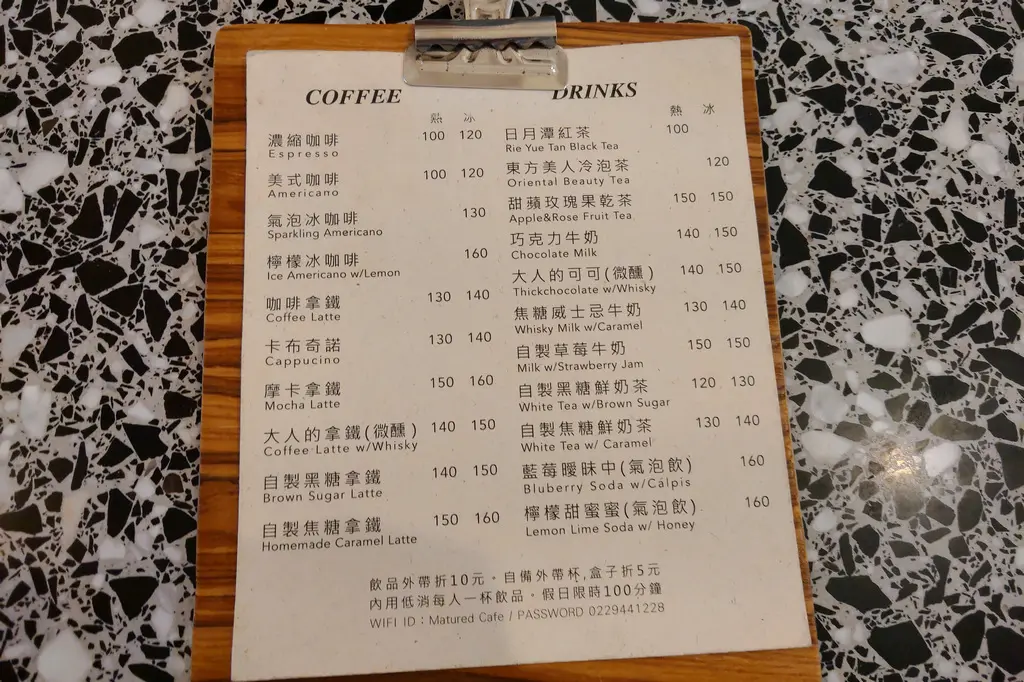 COFFEE
熱 冰
濃縮咖啡 100 120
Espresso
美式咖啡 100 120
Americano
氣泡冰咖啡 130
Sparkling Americano
檸檬冰咖啡 160
Ice Americano w/Lemon
咖啡拿鐵 130 140
Coffee Latte
卡布奇諾 130 140
Cappucino
摩卡拿鐵 150 160
Mocha Latte
大人的拿鐵(微醺) 140 150
Coffee Latte w/Whisky
自製黑糖拿鐵 140 150
Brown Sugar Latte
自製焦糖拿鐵 150 160
Homemade Caramel Latte
DRINKS
熱 冰
日月潭紅茶 100
Rie Yue Tan Black Tea
東方美人冷泡茶 120
Oriental Beauty Tea
甜蘋玫瑰果乾茶 150 150
Apple&Rose Fruit Tea
巧克力牛奶 140 150
Chocolate Milk
大人的可可(微醺) 140 150
Thickchocolate w/Whisky
焦糖威士忌牛奶 130 140
Whisky Milk w/Caramel
自製草莓牛奶 150 150
Milk w/Strawberry Jam
自製黑糖鮮奶茶 120 130
White Tea w/Brown Sugar
自製焦糖鮮奶茶 130 140
White Tea w/ Caramel
藍莓曖昧中(氣泡飲) 160
Bluberry Soda w/Cálpis
檸檬甜蜜蜜(氣泡飲) 160
Lemon Lime Soda w/ Honey
飲品外帶折10元。自備外帶杯,盒子折5元
內用低消每人一杯飲品。假日限時100分鐘
WIFI ID：Matured Cafe / PASSWORD 0229441228